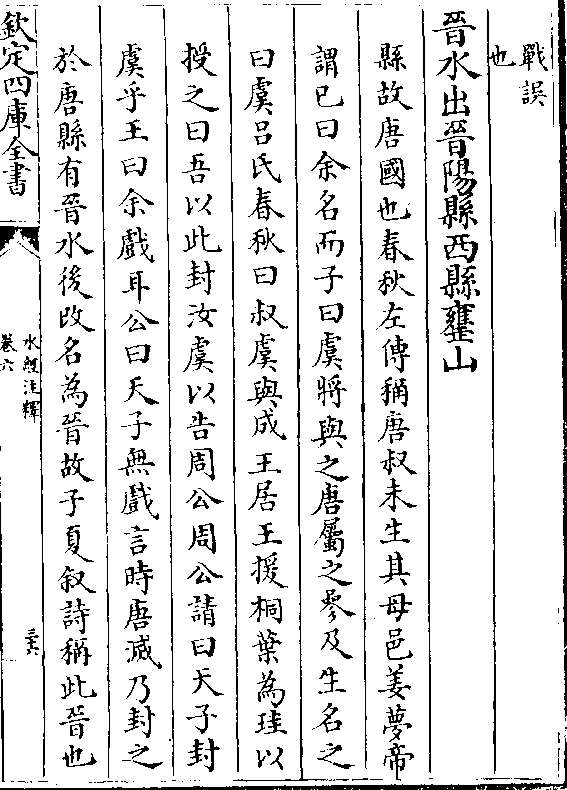 戰誤
也
晉水出晉陽縣西縣壅山
縣故唐國也春秋左傳稱唐叔未生其母邑姜夢帝
謂已曰余名而子曰虞將與之唐屬之參及生名之
曰虞吕氏春秋曰叔虞與成王居王援桐葉為珪以
授之曰吾以此封汝虞以告周公周公請曰天子封
虞乎王曰余戲耳公曰天子無戲言時唐滅乃封之
於唐縣有晉水後改名為晉故子夏叙詩稱此晉也
欽定四庫全書
水經注釋
卷六
三六